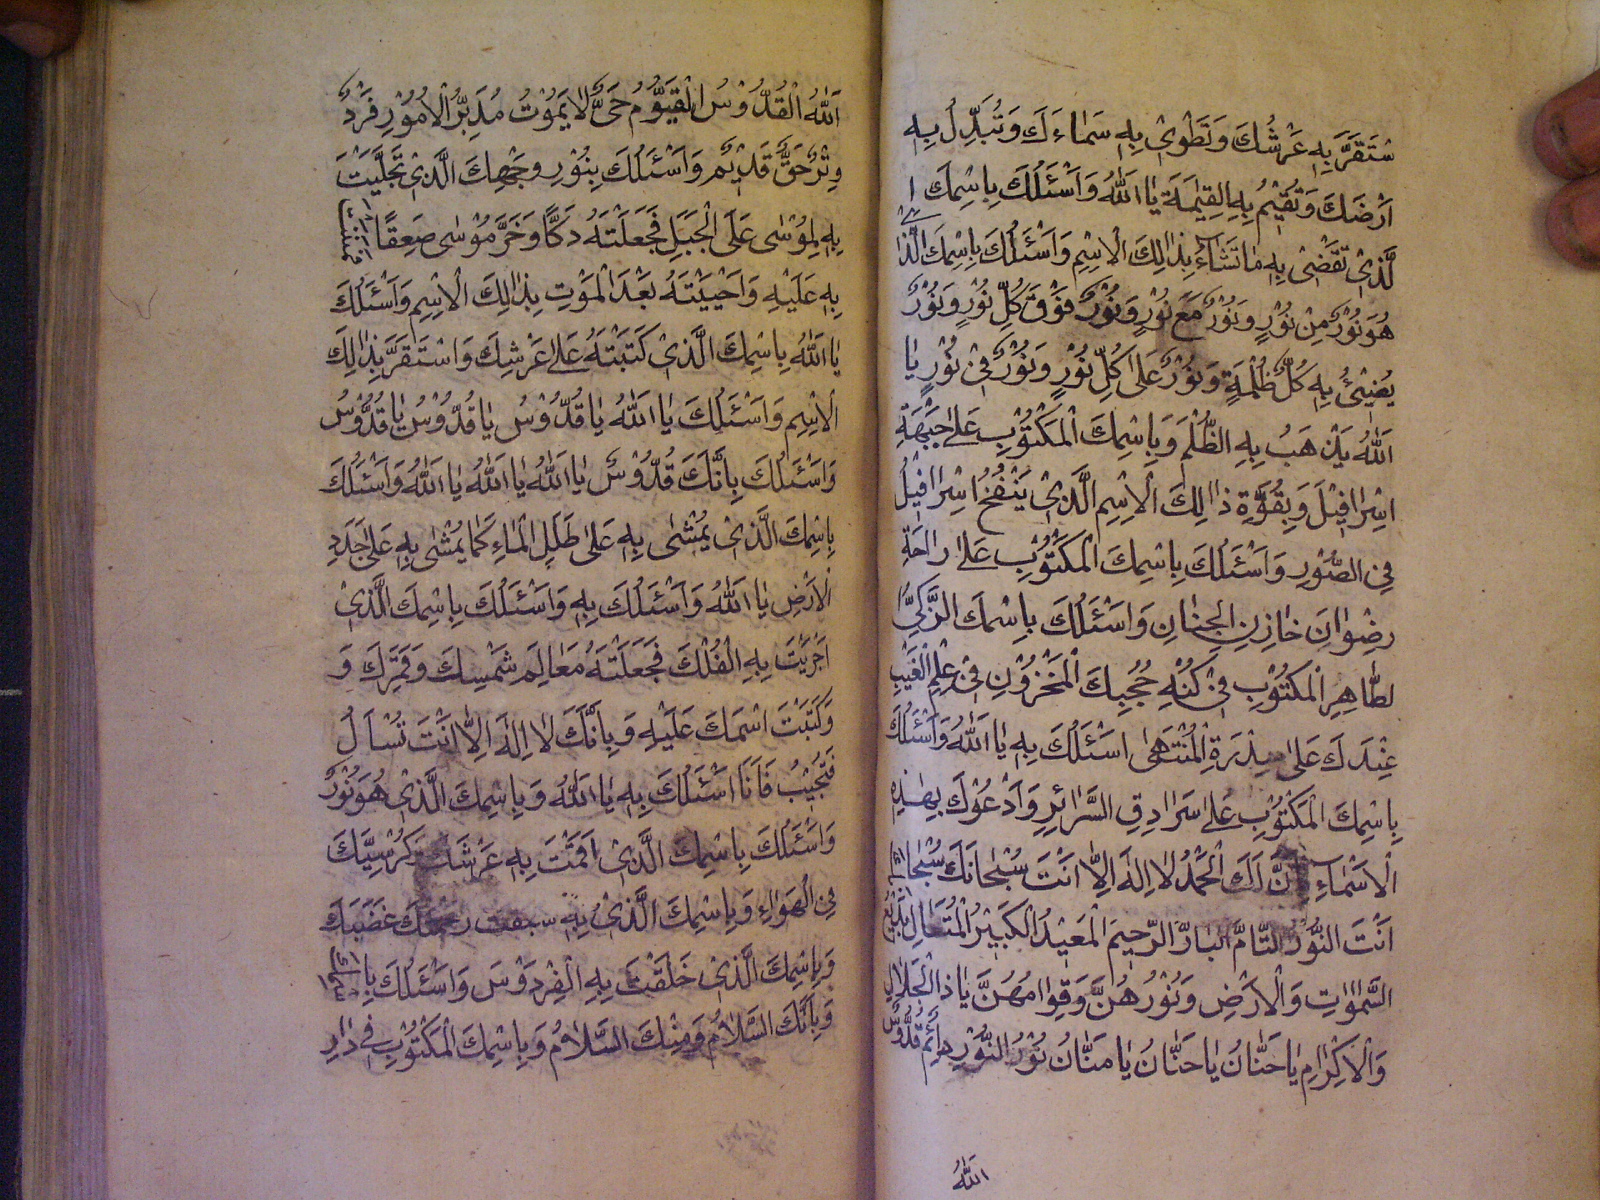 سْتَقَرَّ بِهِ عَرْشُكَ وَتَطْوِيْ بِهِ سَمَاءَكَ وَتُبَدِّلُ بِهِ
اَرْضَكَ وَتُقِيْمُ بِهِ الْقِيٰمَةَ يَا اَللّٰهُ وَاَسْئَلُكَ بِاسْمِكَ ا
لَّذِيْ تَقْضِيْ بِهِ مَا تَشَاءُ بِذَالِكَ الْاِسْمِ وَاَسْئَلُكَ بِاسْمِكَ الَّذِيْ
هُوَ نُوْرٌ مِنْ نُوْرٍ وَنُوْرٌ مَعَ نُوْرٍ وَنُوْرٌ فَوْقَ كُلِّ نُوْرٍ وَنُوْرٌ
يُضِيْئُ بِهِ كُلُّ ظُلْمَةٍ وَنُوْرٌ عَلٰى كُلِّ نُوْرٍ وَنُوْرٌ فِيْ نُوْرٍ يَا
اَللّٰهُ يَذْهَبُ بِهِ الظُّلَمُ وَبِاسْمِكَ الْمَكْتُوْبِ عَلٰى جَبْهَةِ
اِسْرَافِيْلَ وَبِقُوَّةِ ذَالِكَ الْاِسْمِ الَّذِيْ يَنْفُخُ اِسْرَافِيْلُ
فِي الصُّوْرِ وَاَسْئَلُكَ بِاسْمِكَ الْمَكْتُوْبِ عَلٰى رَاحَةِ
رِضْوَانَ خَازِنِ الْجِنَانِ وَاَسْئَلُكَ بِاسْمِكَ الزَّكِيِّ
لطَّاهِرِ الْمَكْتُوْبِ فِيْ كُنْهِ حُجُبِكَ الْمَخْزُوْنِ فِيْ عِلْمِ الْغَيْبِ
عِنْدَكَ عَلٰى سِدْرَةِ الْمُنْتَهٰى اَسْئَلُكَ بِهِ يَا اَللّٰهُ وَاَسْئَلُكَ
بِاسْمِكَ الْمَكْتُوْبِ عَلٰى سَرَادِقِ السَّرَائِرِ وَاَدْعُوْكَ بِهٰذِهِ
الْاَسْمَاءِ بِاَنَّ لَكَ الْحَمْدُ لَا اِلٰهَ اِلَّا اَنْتَ سُبْحَانَكَ سُبْحَانَكَ
اَنْتَ النُّوْرُ التَّامُّ الْبَارُّ الرَّحِيْمُ الْمُعِيْدُ الْكَبِيْرُ الْمُتَعَالِ بَدِيْعُ
السَّمٰوَاتِ وَالْاَرْضِ وَنُوْرُهُنَّ وَقِوَامُهُنَّ يَا ذَا الْجَلَالِ
وَالْاِكْرَامِ يَا حَنَّانُ يَا حَنَّانُ يَا مَنَّانُ نُوْرُ النُّوْرِ دَائِمٌ قُدُّوْسٌ
اَللّٰهُ
اَللّٰهُ الْقُدُّوْسُ الْقَيُّوْمُ حَيٌّ لَا يَمُوْتُ مُدَبِّرُ الْاُمُوْرِ فَرْدٌ
وِتْرٌ حَقٌّ قَدِيْمٌ وَاَسْئَلُكَ بِنُوْرِ وَجْهِكَ الَّذِيْ تَجَلَّيْتَ
بِهِ لِمُوْسٰى عَلَى الْجَبَلِ فَجَعَلْتَهُ دَكًّا وَخَرَّ مُوْسٰى صَعِقًا فَمَنَنْتَ
بِهِ عَلَيْهِ وَاَحْيَيْتَهُ بَعْدَ الْمَوْتِ بِذَالِكَ الْاِسْمِ وَاَسْئَلُكَ
يَا اَللّٰهُ بِاسْمِكَ الَّذِيْ كَتَبْتَهُ عَلٰى عَرْشِكَ وَاسْتَقَرَّ بِذَالِكَ
الْاِسْمِ وَاَسْئَلُكَ يَا اَللّٰهُ يَا قُدُّوْسُ يَا قُدُّوْسُ يَا قُدُّوْسُ
وَاَسْئَلُكَ بِاَنَّكَ قُدُّوْسٌ يَا اَللّٰهُ يَا اَللّٰهُ يَا اَللّٰهُ وَاَسْئَلُكَ
بِاسْمِكَ الَّذِيْ يُمْشٰى بِهِ عَلٰى طَلَلِ الْمَاءِ كَمَا يُمْشٰى بِهِ عَلٰى جَدَدِ
الْاَرْضِ يَا اَللّٰهُ وَاَسْئَلُكَ بِهِ وَاَسْئَلُكَ بِاسْمِكَ الَّذِيْ
اَجْرَيْتَ بِهِ الْفُلْكَ فَجَعَلْتَهُ مَعَالِمَ شَمْسِكَ وَقَمَرِكَ وَ
وَكَتَبْتَ اسْمَكَ عَلَيْهِ وَبِاَنَّكَ لَا اِلٰهَ اِلَّا اَنْتَ تُسْاَلُ
فَتُجِيْبُ فَاَنَا اَسْئَلُكَ بِهِ يَا اَللّٰهُ وَبِاسْمِكَ الَّذِيْ هُوَ نُوْرٌ
وَاَسْئَلُكَ بِاسْمِكَ الَّذِيْ اَقَمْتَ بِهِ عَرْشَكَ وَكُرْسِيَّكَ
فِي الْهَوَاءِ وَبِاسْمِكَ الَّذِيْ بِهِ سبقت رحمتك غَضَبَكَ
وَبِاسْمِكَ الَّذِيْ خَلَقْتَ بِهِ الْفِرْدَوْسَ وَاَسْئَلُكَ
وَبِاَنَّكَ السَّلَامُ وَمِنْكَ السَّلَامُ وَبِاسْمِكَ الْمَكْتُوْبِ فِيْ دَارِ